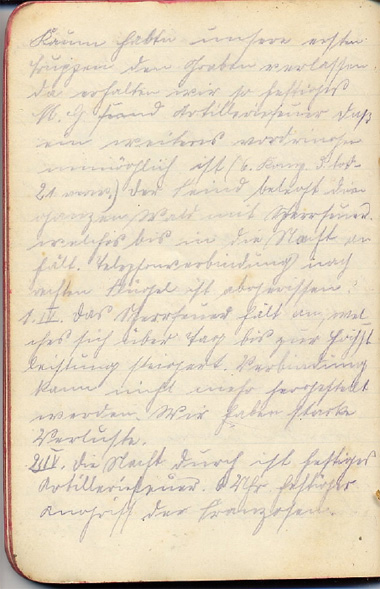 Kaum haben unsere ersten
Truppen den Graben verlassen
da erhalten wir so heftiges
M. G. und Artilleriefeuer daß
ein weiteres vordringen
unmöglich ist (6. Komp. 3 tot
21 verw.) der Feind belegt den
ganzen Wald mit Sperrfeuer.
welches bis in die Nacht an
hält. Telephonverbindung nach
rechten Flügel ist abgerissen.
1. IV. das Sperrfeuer hält an, wel
ches sich über Tag bis zur Höchst
leistung steigert. Verbindung
kann nicht mehr hergestellt
werden. Wir haben starke
Verluste.
2. IV. die Nacht durch ist heftiges
Artilleriefeuer. Uhr heftiger
Angriff der Franzosen.